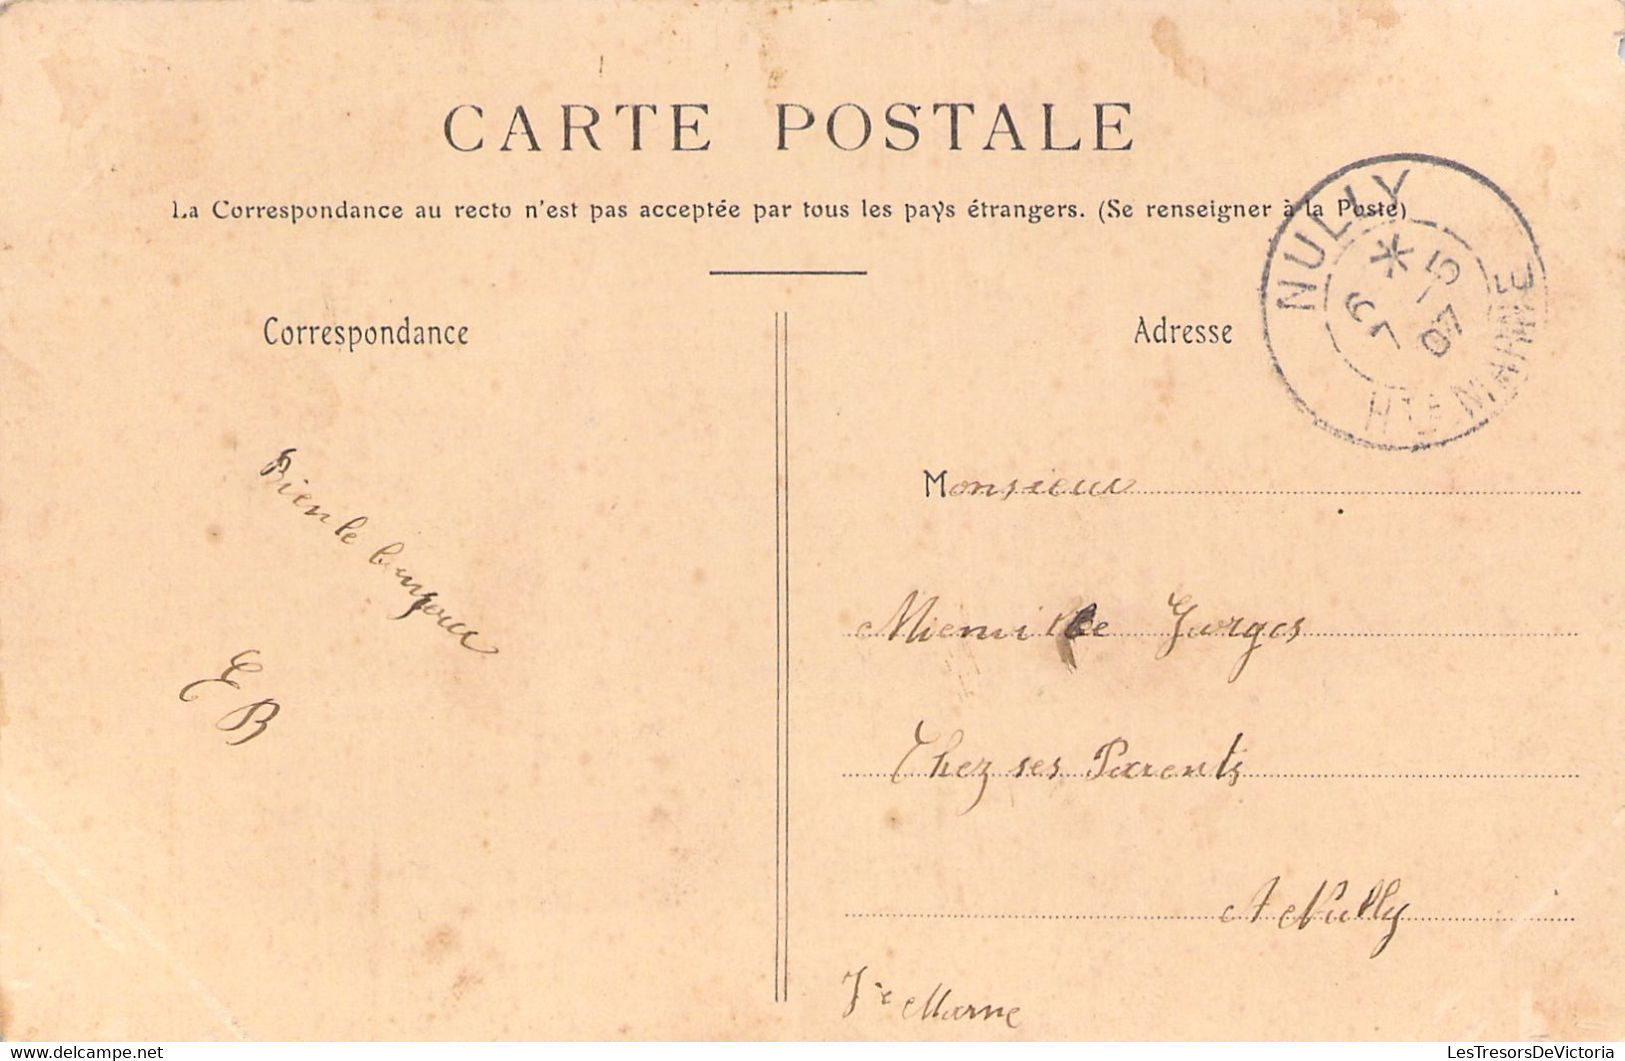 CARTE POSTALE
La Correspondance au recto n'est pas acceptée par tous les pays étrangers. (Se renseigner à la Poste)
NULLY
* 5
6 - 7 07
HTE MARNE
Correspondance
Adresse
Bien le bonjour
E B
Monsieur
Mienville Gorges
Chez ses Parents
A Nully
Hte Marne
LesTresorsDeVictoria